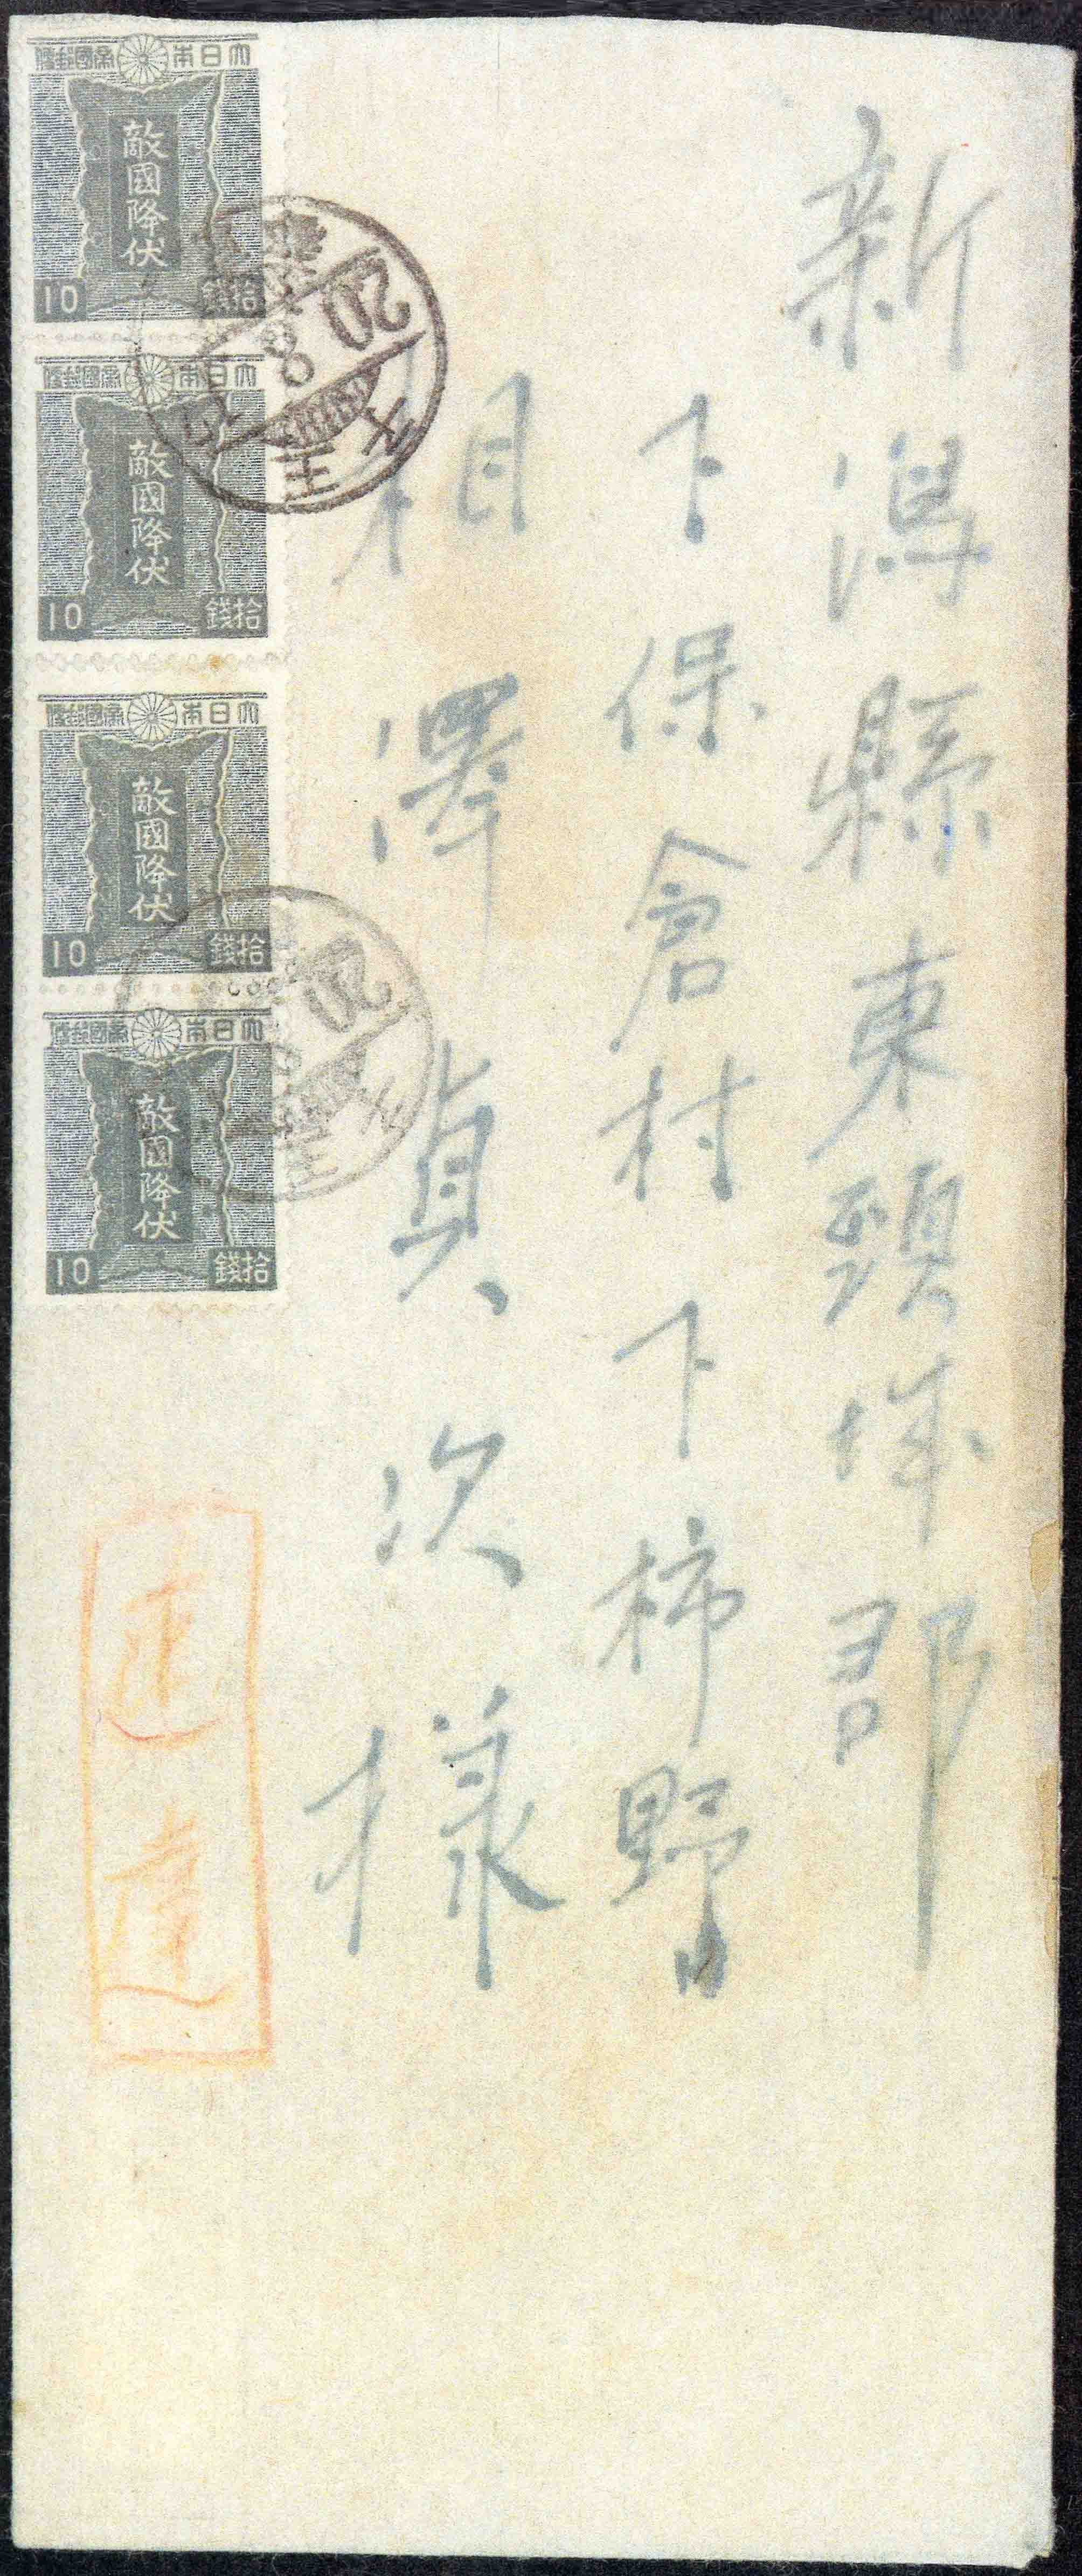 新潟縣東頸城郡
下保倉村下柿野
相澤貞次様
速達
大日本帝國郵便
敵國降伏
10
拾錢
大日本帝國郵便
敵國降伏
10
拾錢
大日本帝國郵便
敵國降伏
10
拾錢
大日本帝國郵便
敵國降伏
10
拾錢
20
8
王子
20
王子